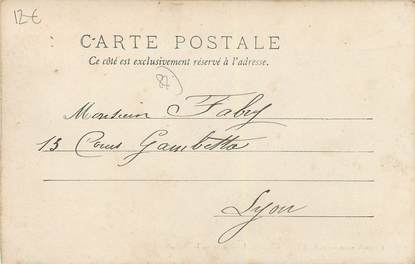 12€
CARTE POSTALE
Ce côté est exclusivement réservé à l'adresse.
87
Monsieur Fabry
13 Cours Gambetta
Lyon